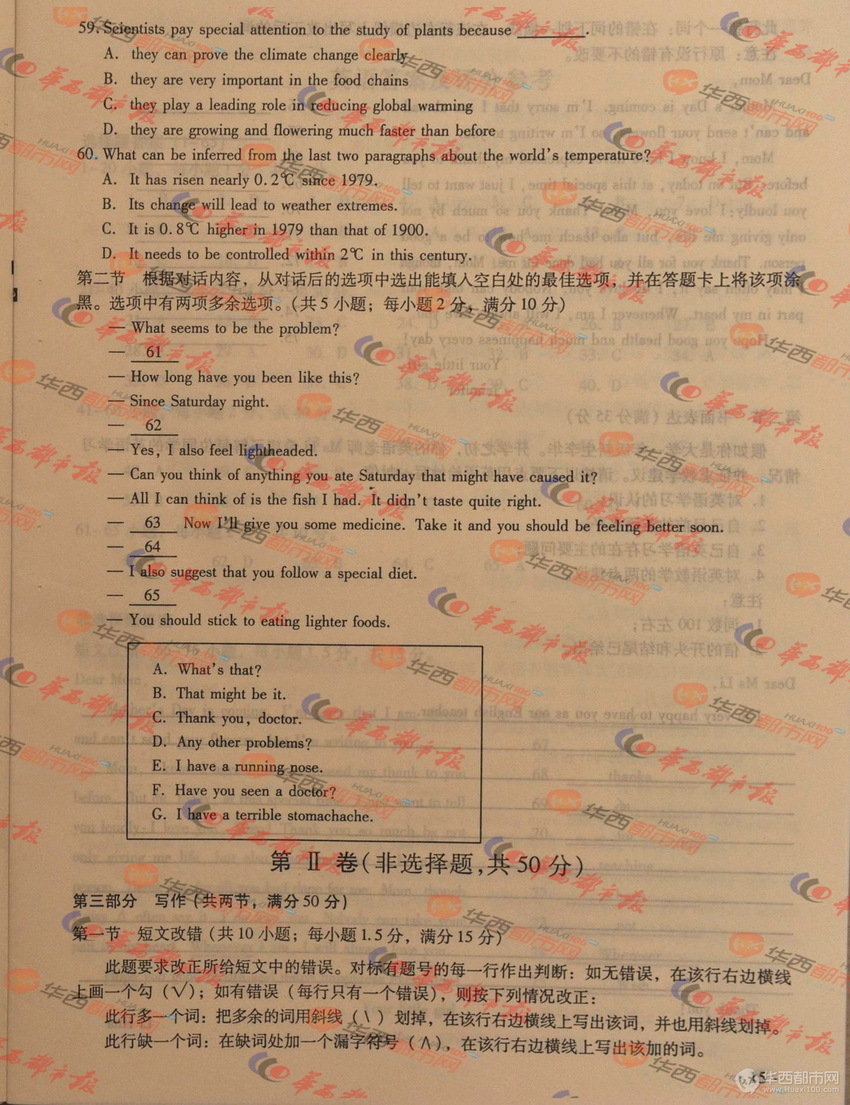 59. Scientists pay special attention to the study of plants because ______.
A. they can prove the climate change clearly
B. they are very important in the food chains
C. they play a leading role in reducing global warming
D. they are growing and flowering much faster than before
60. What can be inferred from the last two paragraphs about the world's temperature?
A. It has risen nearly 0.2℃ since 1979.
B. Its change will lead to weather extremes.
C. It is 0.8℃ higher in 1979 than that of 1900.
D. It needs to be controlled within 2℃ in this century.
第二节 根据对话内容，从对话后的选项中选出能填入空白处的最佳选项，并在答题卡上将该项涂
黑。选项中有两项多余选项。（共5小题；每小题2分，满分10分）
— What seems to be the problem?
— 61
— How long have you been like this?
— Since Saturday night.
— 62
— Yes, I also feel lightheaded.
— Can you think of anything you ate Saturday that might have caused it?
— All I can think of is the fish I had. It didn't taste quite right.
— 63 Now I'll give you some medicine. Take it and you should be feeling better soon.
— 64
— I also suggest that you follow a special diet.
— 65
— You should stick to eating lighter foods.
A. What's that?
B. That might be it.
C. Thank you, doctor.
D. Any other problems?
E. I have a running nose.
F. Have you seen a doctor?
G. I have a terrible stomachache.
第 Ⅱ 卷（非选择题，共50分）
第三部分 写作（共两节，满分50分）
第一节 短文改错（共10小题；每小题1.5分，满分15分）
此题要求改正所给短文中的错误。对标有题号的每一行作出判断：如无错误，在该行右边横线
上画一个勾（√）；如有错误（每行只有一个错误），则按下列情况改正：
此行多一个词：把多余的词用斜线（\）划掉，在该行右边横线上写出该词，并也用斜线划掉。
此行缺一个词：在缺词处加一个漏字符号（∧），在该行右边横线上写出该加的词。
华西都市报
华西都市网
HUAXI100
华西都市网
www.Huaxi100.com